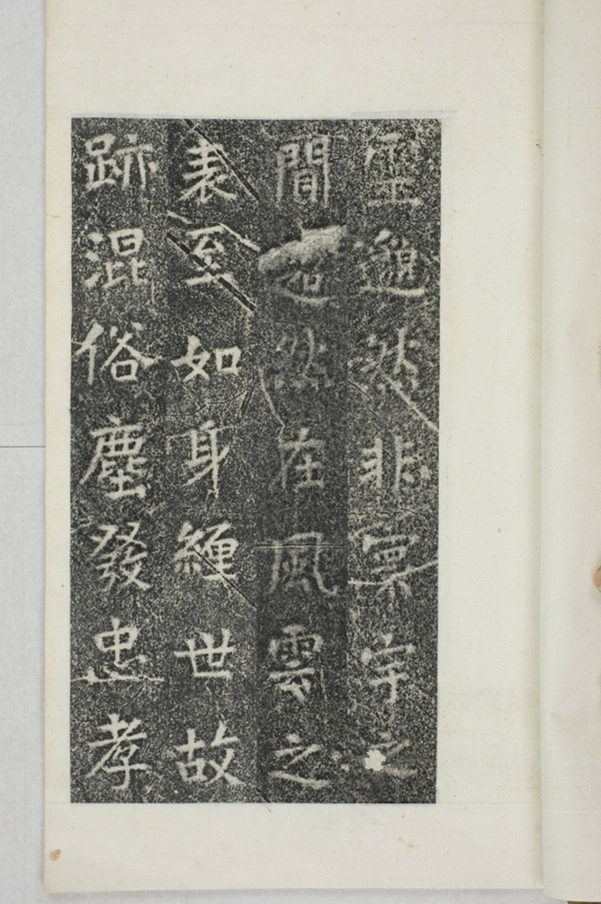 靈邈然非寰宇之
間超然在風雲之
表至如身纏世故
跡混俗塵發忠孝